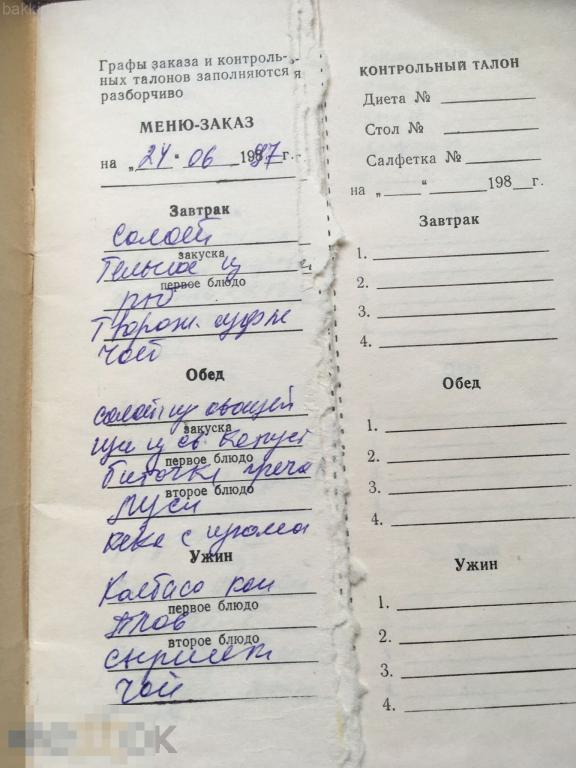 bakki
Графы заказа и контроль-
ных талонов заполняются
разборчиво
МЕНЮ-ЗАКАЗ
на „24“ 06 198 97г.
Завтрак
салат
закуска
Тельное из
первое блюдо
рыб
Творож. суфле
чай
Обед
салат из овощей
закуска
щи из св. капуст
первое блюдо
Биточки греча
второе блюдо
кекс с изюмом
Ужин
Колбаса коп
первое блюдо
плов
второе блюдо
сырники
чай
КОНТРОЛЬНЫЙ ТАЛОН
Диета №
Стол №
Салфетка №
на „ “ 198 г.
Завтрак
1.
2.
3.
4.
Обед
1.
2.
3.
4.
Ужин
1.
2.
3.
4.